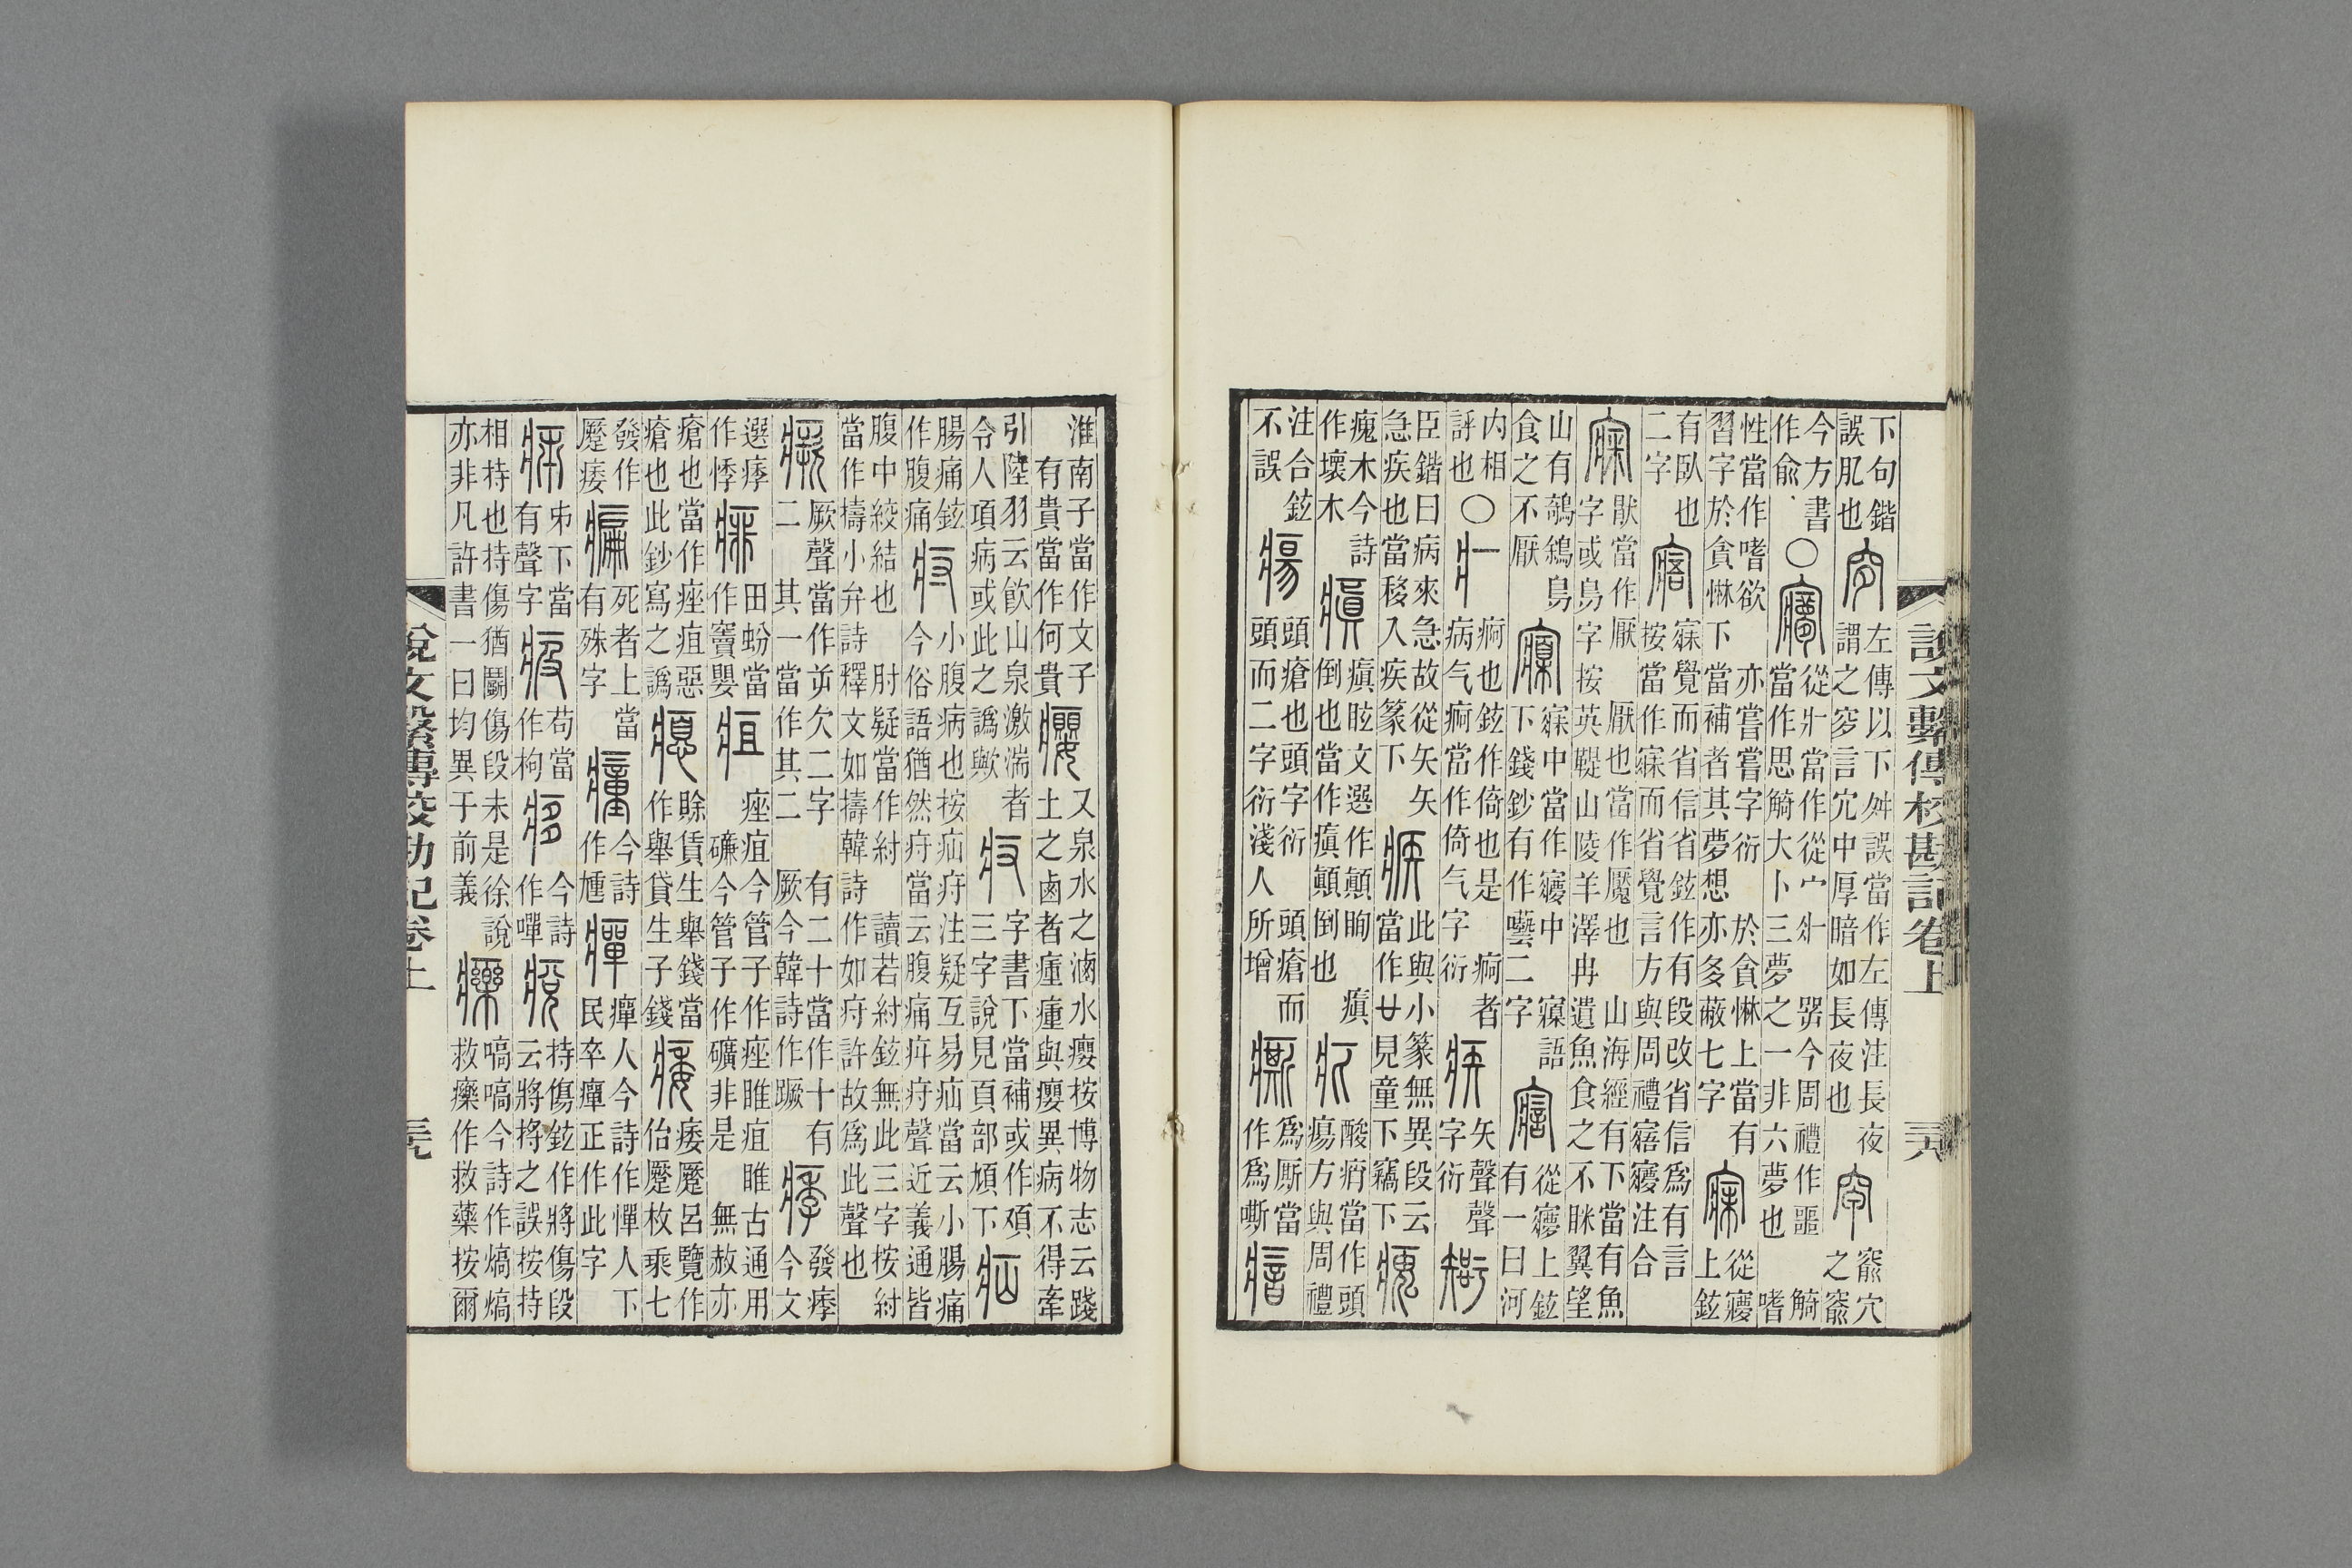 下句鍇
誤肊也
穸
左傳以下舛誤當作左傳注長夜
謂之穸言宂中厚暗如長夜也
窾穴
之窾
今方書
作兪
○
㝱
從爿當作從宀爿
㗊今周禮作噩
觭
當作思觭大卜三夢之一非六夢也
嗜
性當作嗜欲
亦嘗嘗字衍
於貪惏上當有
習字於貪惏下當補者其夢想亦多蔽七字
從㝱
上鉉
有臥也
二字
寤
㝥覺而省信省鉉作有段改省信爲有言
按當作㝥而省覺言方與周禮寤㝱注合
猒當作厭
厭也當作魘也
山海經有下當有魚
字或鳥字按英鞮山陵羊澤冉遺魚食之不眯翼望
山有鵸鵌鳥
食之不厭
㝥中當作㝱中
寱語
下錢鈔有作囈二字
從㝱上鉉
有一曰河
内相
評也
○
疒
痾也鉉作倚也是
痾者
病气痾當作倚气字衍
矢聲聲
字衍
臣鍇曰病來急故從矢矢
急疾也當移入疾篆下
此與小篆無異段云
當作廿見童下竊下
瘣木今詩
作壞木
瘨
瘨眩文選作顛眴
瘨
倒也當作瘨顛倒也
酸痟當作頭
瘍方與周禮
注合鉉
不誤
瘍
頭瘡也頭字衍
頭瘡而
頭而二字衍淺人所增
爲厮當
作爲嘶
瘖
說文繫傳校勘記卷上
三八
淮南子當作文子
有貴當作何貴
癭
又泉水之滷水癭桉博物志云踐
土之鹵者瘇瘇與癭異病不得牽
引陸羽云飲山泉激湍者
令人項病或此之譌歟
字書下當補或作㾪
三字說見頁部䪴下
疝
腸痛鉉
作腹痛
小腹病也按疝疛注疑互易疝當云小腸痛
今俗語猶然疛當云腹痛疛聲近義通皆
腹中絞結也
肘疑當作紂
讀若紂鉉無此三字按紂
當作檮小弁詩釋文如檮韓詩作如疛許故爲此聲也
瘚
厥聲當作屰欠二字
有二十當作十有
二
其一當作其二
厥今韓詩作蹶
痵
發痵
今文
選痵
作悸
田蚡當
作竇嬰
疽
痤疽今管子作痤睢疽睢古通用
礦今管子作礦非是
無赦亦
瘡也當作痤疽惡
瘡也此鈔寫之譌
瘜
賖賃生舉錢當
作舉貸生子錢
痿
痿蹷呂覽作
佁蹷枚乘七
發作
蹷痿
瘺
死者上當
有殊字
瘇
今詩
作尰
癉
癉人今詩作憚人下
民卒癉正作此字
朿下當
有聲字
疲
苟當
作枸
㾋
今詩
作嘽
持傷鉉作將傷段
云將將之誤按持
相持也持傷猶鬬傷段未是徐說
亦非凡許書一曰均異于前義
嗃嗃今詩作熇熇
救癴作救藥按爾
說文繫傳校勘記卷上
三九